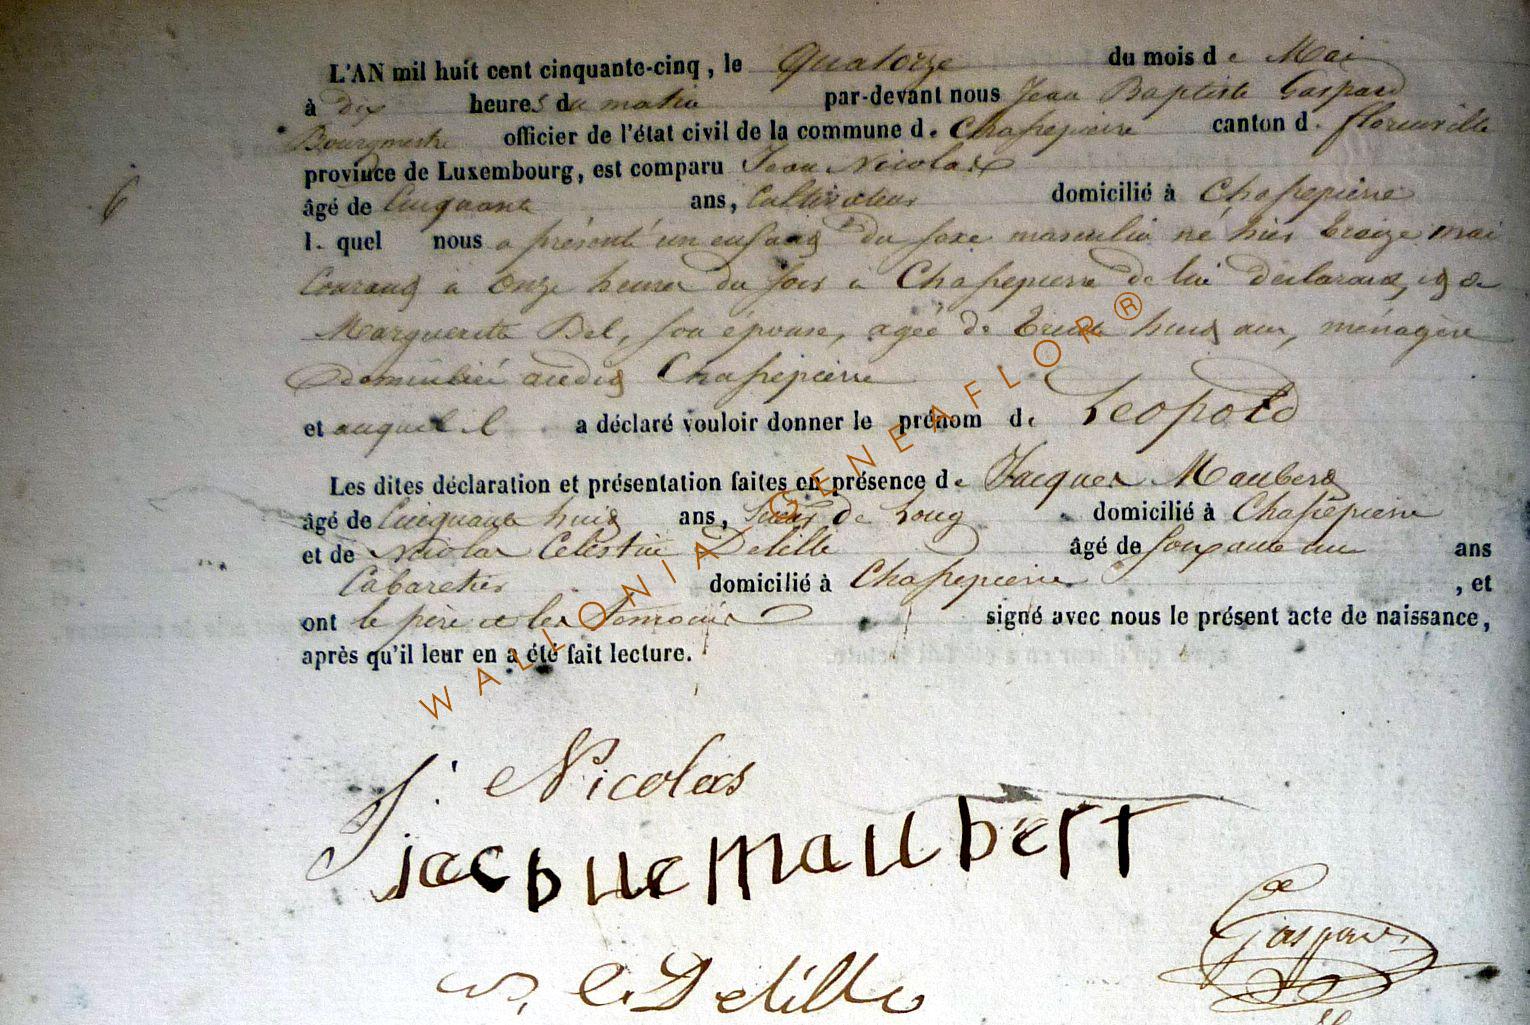 L'AN mil huit cent cinquante-cinq, le Quatorze du mois de Mai
à dix heures du matin par-devant nous Jean Baptiste Gaspard
Bourgmestre officier de l'état civil de la commune de Chassepierre canton d. florenville
province de Luxembourg, est comparu Jean Nicolas
âgé de Cinquante ans, Cultivateur domicilié à Chassepierre
l. quel nous a présenté un enfant du sexe masculin né hier treize mai
Courant à onze heures du soir à Chassepierre de lui déclarant, et de
Marguerite Bel, son épouse, agée de trente huit ans, ménagère
domiciliée audit Chassepierre
et auquel il a déclaré vouloir donner le prénom de Leopold
Les dites déclaration et présentation faites en présence de Jacques Maubert
âgé de Cinquante huit ans, de Long domicilié à Chassepierre
et de Nicolas Celestin Delille âgé de soixante un ans
Cabaretier domicilié à Chassepierre , et
ont le père et les temoins signé avec nous le présent acte de naissance,
après qu'il leur en a été fait lecture.
6
WALLONIA-GENEAFLOR®
J. Nicolas
jacque maubert
Gaspard
n. C. Delille